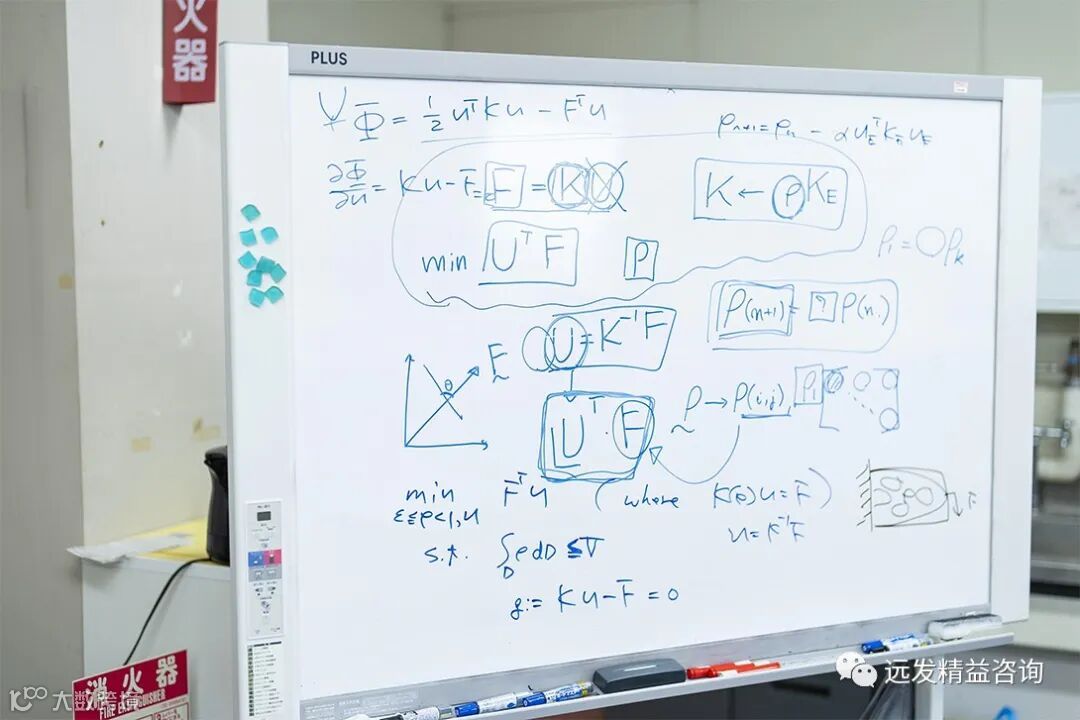 火
器
PLUS
Φ̄ = 1/2 uᵀKu − Fᵀu
ρn+1 = ρn − α uEᵀ Kn uE
∂Φ̄/∂u = Ku − F̄ = F = K U
K ← ρ KE
min UᵀF ρ
ρ1 = ○ρk
ρ(n+1) = ? ρ(n)
θ
F
U = K⁻¹F
Uᵀ · F
ρ → ρ(i,j) ρ1
min F̄ᵀu (where K(ρ)u = F̄)
ε≤ρ<1, u
u = K⁻¹F̄
F
s.t. ∫D ρ dD ≤ V
g := Ku − F̄ = 0
消火器
FIRE EXTINGUISHER
大数跨境
远发精益咨询